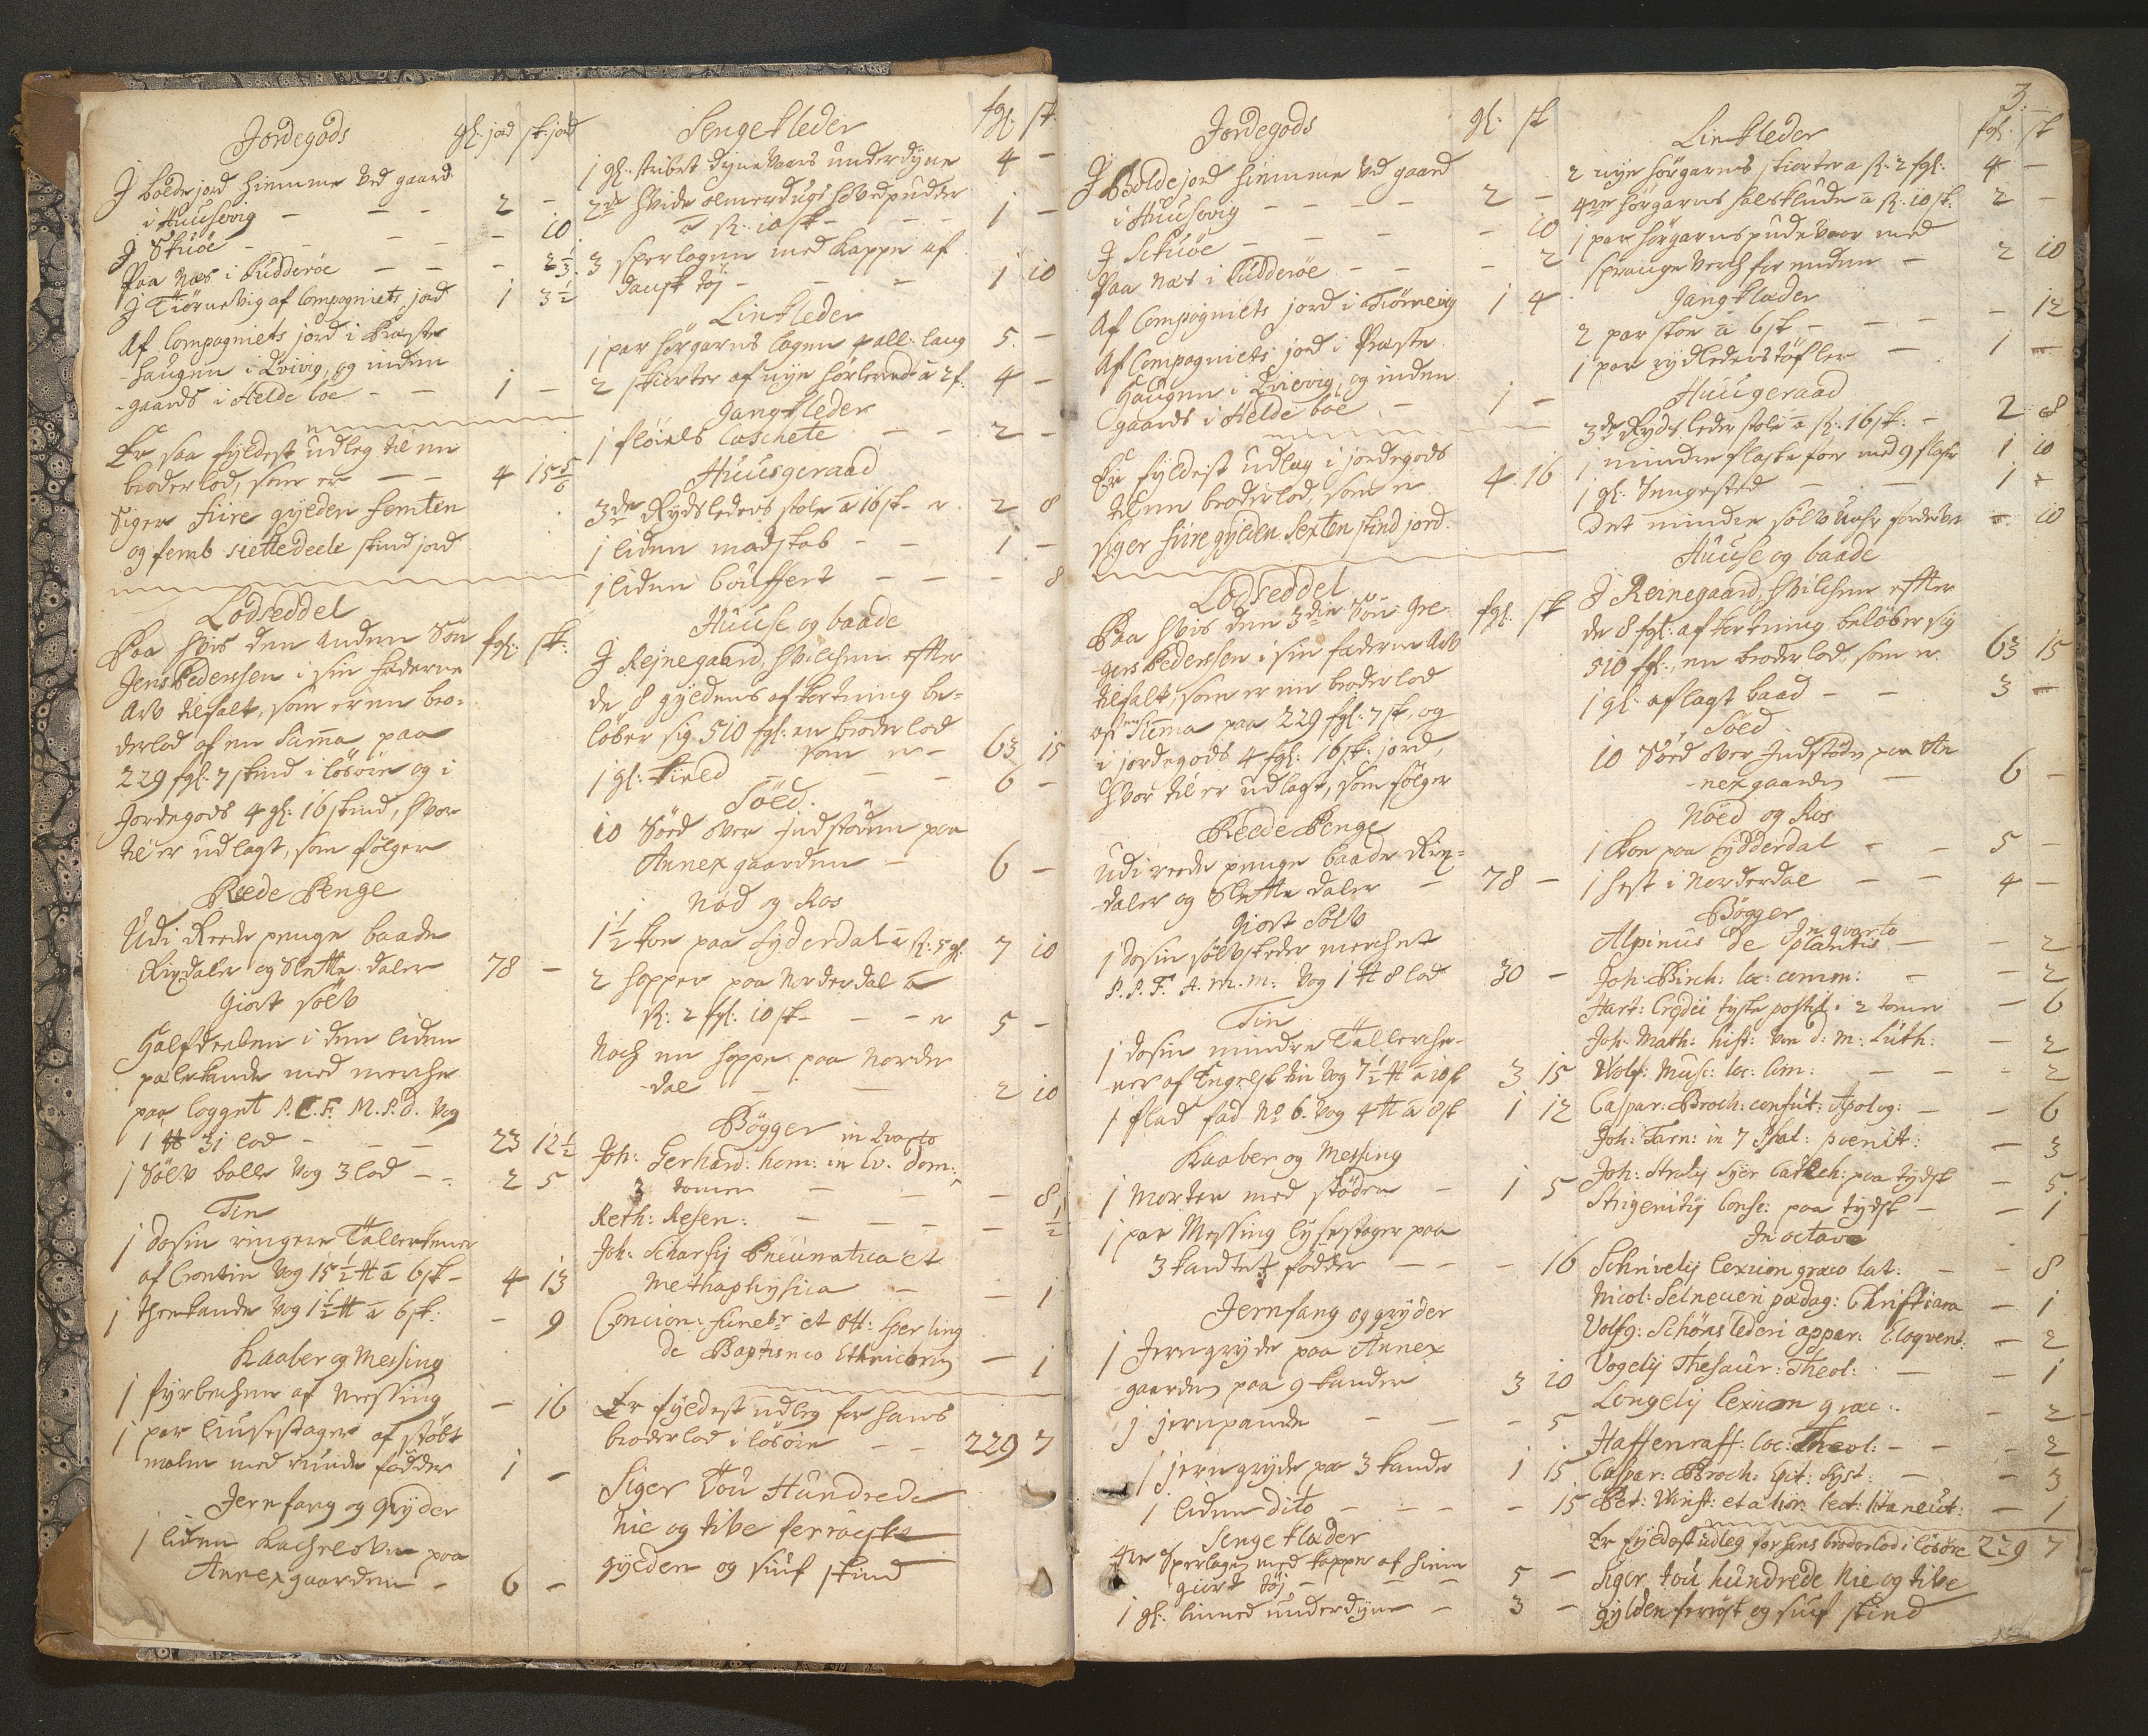 Jordegods gl: jord sk: jord
J bolde jord hiemme ved gaard
i Huusevig – – – 2 –
J Skuöe – – – – 10
Paa Næs i Sudderöe – – – – 2 1/3
J Tiörnevig af Compagniets jord 1 3 1/2
Af Compagniets jord i Præste
-haugen i Qvivig, og inden
-gaards i Helde boe – – 1 –
Er saa fyldest udleg til en
broderlod, som er – – 4 15 5/6
Siger fiire gylden femten
og femb siettedeele skind jord
Lodseddel
Paa hvis den anden Sön fgl: sk:
Jens Pedersen i sin fæderne
Arv tilfalt, som er een bro-
derlod af en Suma paa
229 fgl: 7 skind i lösöre og i
Jordegods 4 gl: 16 skind, hvor
til er udlagt, som fölger
Reede Penge
Udi Reede penge baade
Rixdaler og Slette daler 78 –
Giort sölv
Halfdeelen i den liden
pælekande med merche
paa logget P.C.F. M.P.D. vog
1 ℔ 31 lod – – – 23 12 1/2
1 Sölv balle vog 3 lod – – 2 5
Tin
1 dosin ringere Tallerkener
af Crontin vog 15 1/2 ℔ a 6 sk – 4 13
1 Theekande vog 1 1/2 ℔ a 6 sk: – 9
Kaaber og Messing
1 fyrbechen af Messing – 16
1 par liusestager af stöbt
malm med runde födder 1 –
Jernfang og Gryder
1 liden Kachelovn paa
Annexgaarden – 6 –
Sengekleder fgl: sk
1 gl: stribet dyneVaars underdyne 4 –
2de hvide olmerdugs hovedpuder
a St: 10 sk – – – 1 –
3 sperlagen med kappe af
dansk töj – – – 1 10
Linkleder
1 par hörgarns lagen 4 all: lang 5 –
2 skiorter af nye hörlerred a 2 f: 4 –
Gangkleder
1 flöiels Caschete – – 2 –
Huusgeraad
3de Rydsleders stole a 16 sk – er 2 8
1 liden madskab – – 1 –
1 liden Bouffert – – – 8
Huuse og baade
J Reinegaard, hvilchen effter
de 8 gyldens afkortning be-
löber sig 510 fgl: en broderlod
som er – 63 15
1 gl: kield – – – 6 –
Söed.
10 Söed over Jndstöden paa
Annexgaarden – 6 –
Nöd og Ros
1 1/2 koe paa Syderdal a St: 5 gl: 7 10
2 hopper paa Norderdal a
St: 2 fgl: 10 sk – – – er 5 –
Noch en hoppe paa Norder
-dal – – 2 10
Bögger in Qvarto
Joh: Gerhard: hom: in Ev: Dom:
3 tomer – – – 8
Reth: Resen: – – – – 1/2
Joh: Scharfij Pneumatica et
Methaphysica – – 1
Concion: funebr: et Ott: Sperling
de Baptismo Ethnicorum – 1
Er fyldest udleg for hans
broderlod i lösöre – – 229 7
Siger Tou Hundrede
Nie og tive ferröeske
gylden og siuf skind
3.
Jordegods gl: sk
J Bolde jord hiemme ved gaard
i Huusevig – – – – 2 –
J Skuöe – – – – 10
Paa Næs i Sudderöe – – – 2
Af Compagniets jord i Tiörnevig 1 4
Af Compagniets jord i Præste
Haugen i Qvievig, og inden
gaards i Helde boe – 1 –
Er fyldest udlæg i jordegods
til en broderlod, som er 4 16
siger fiire gylden Sexten skind jord.
Lodseddel
Paa hvis den 3die Sön Gre- fgl: sk
-gers Pedersen i sin fæderne Arv
tilfalt, som er een broderlod
af en Suma paa 229 fgl: 7 sk, og
i jordegods 4 fgl: 16 sk: jord,
hvor til er udlagt, som fölger
Reede Penge
Udi reede penge baade Rix-
daler og Slette daler – 78 –
Giort Sölv
1 dosin sölvskeder merchet
P.P.F. A.M.M. vog 1 ℔ 8 lod 30 –
Tin
1 dosin mindre Tallerche-
ner af Engelsk tin vog 7 1/2 ℔ a 10 sk 3 15
1 flad fad No 6. vog 4 ℔ a 8 sk 1 12
Kaaber og Messing
1 Morter med stöder – 1 5
1 par Messing lysestager paa
3 kandtet födder – – – 16
Jernfang og gryder
1 Jerngryde paa Annex
gaarden paa 9 kander 3 10
1 jernpande – – – 5
1 jerngryde paa 3 kander 1 15
1 liden dito – – – – 15
Sengeklæder
4re Sperlagen med kapper af hiem
giort töj – – – 5 –
1 gl: linned underdyne – 3 –
Linkleder fgl: sk
2 nye hörgarns skiorter a St: 2 fgl: 4 –
4re hörgarns halsklude a St: 10 sk: 2 –
1 par hörgarns pudevaar med
sprange Verch for enden – 2 10
Gangklæder
2 par skoe a 6 sk – – – – 12
1 par rydleders töfler – 1 –
Huusgeraad
3de Rydsleder stole a St: 16 sk: – 2 8
1 mindre flaskefoer med 9 flasker 1 10
1 gl: Sengested – – 1 –
Det mindre sölv Uuhr forderved – 10
Huuse og baade
J Reinegaard, hvilchen effter
de 8 fgl: afkortning belöber sig
510 fgl:, en broderlod, som er 63 15
1 gl: aflagt baad – – 3 –
Söed
10 Söed over Jndstöden paa An
-nexgaarden – 6 –
Nöed og Ros
1 Koe paa Sydderdal – – 5 –
1 hest i Norderdal – – 4 –
Bögger
In qvarto
Alpinus de plantis – – 2
Joh: Birch: loc: comm: – – 2
Hart: Creidii tyske postil i 2 tomer – 6
Joh: Math: hist: von d: M: Luth: – 2
Wolf: Musc: loc: Com: – – – 2
Caspar: Broch: confut: Apolog: – – 6
Joh: Tarn: in 7 Psal: poenit: – 3
Joh: Stralij Syer Catech: paa tydsk – 5
Strigenitij Consc: paa tydsk – – 1
In octavo
Schrivelij lexicon græco lat: – – 8
Nicol: Selneceri pædag: Christiana – 1
Volfg: Schönslederi appar: Eloqvent: – 2
Vogelij Thesaur: Theol: – – 1
Longelij lexicon græc: – 2
Haffenraff: loc: Theol: – – – 2
Caspar: Broch: Epit: Syst: – – 3
Er fyldest udleg for hans broderlod i lösöre 229 7
Siger tou hundrede Nie og tive
gylden ferrösk og siuf skind